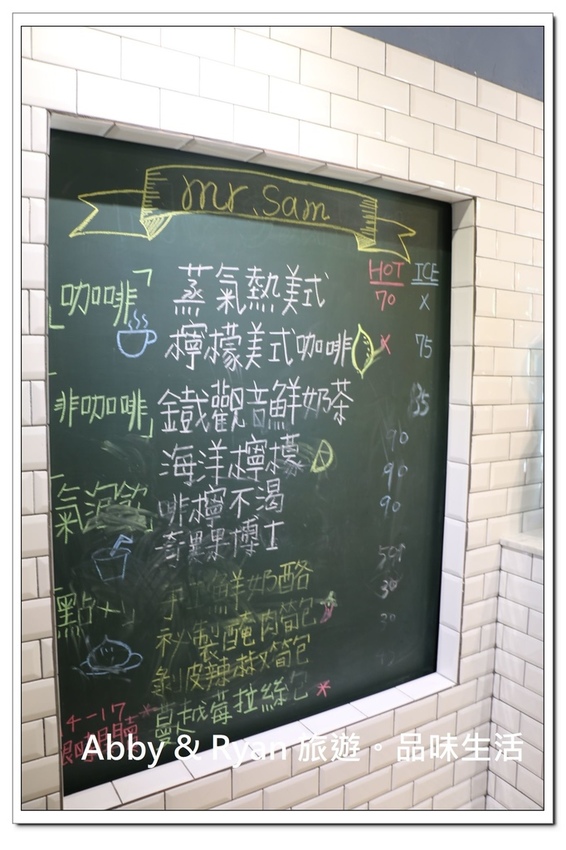 mr. Sam
HOT ICE
「咖啡」 蒸氣熱美式 70 X
檸檬美式咖啡 X 75
非咖啡」 鐵觀音鮮奶茶 85
海洋檸檬 90
氣泡飲 啡檸不渴 90
奇異果博士 90
點心 手工鮮奶酪
秘製醃肉筍包
剝皮辣椒筍包
蔓越莓拉絲包*
14-17
限時販賣
Abby & Ryan 旅遊。品味生活